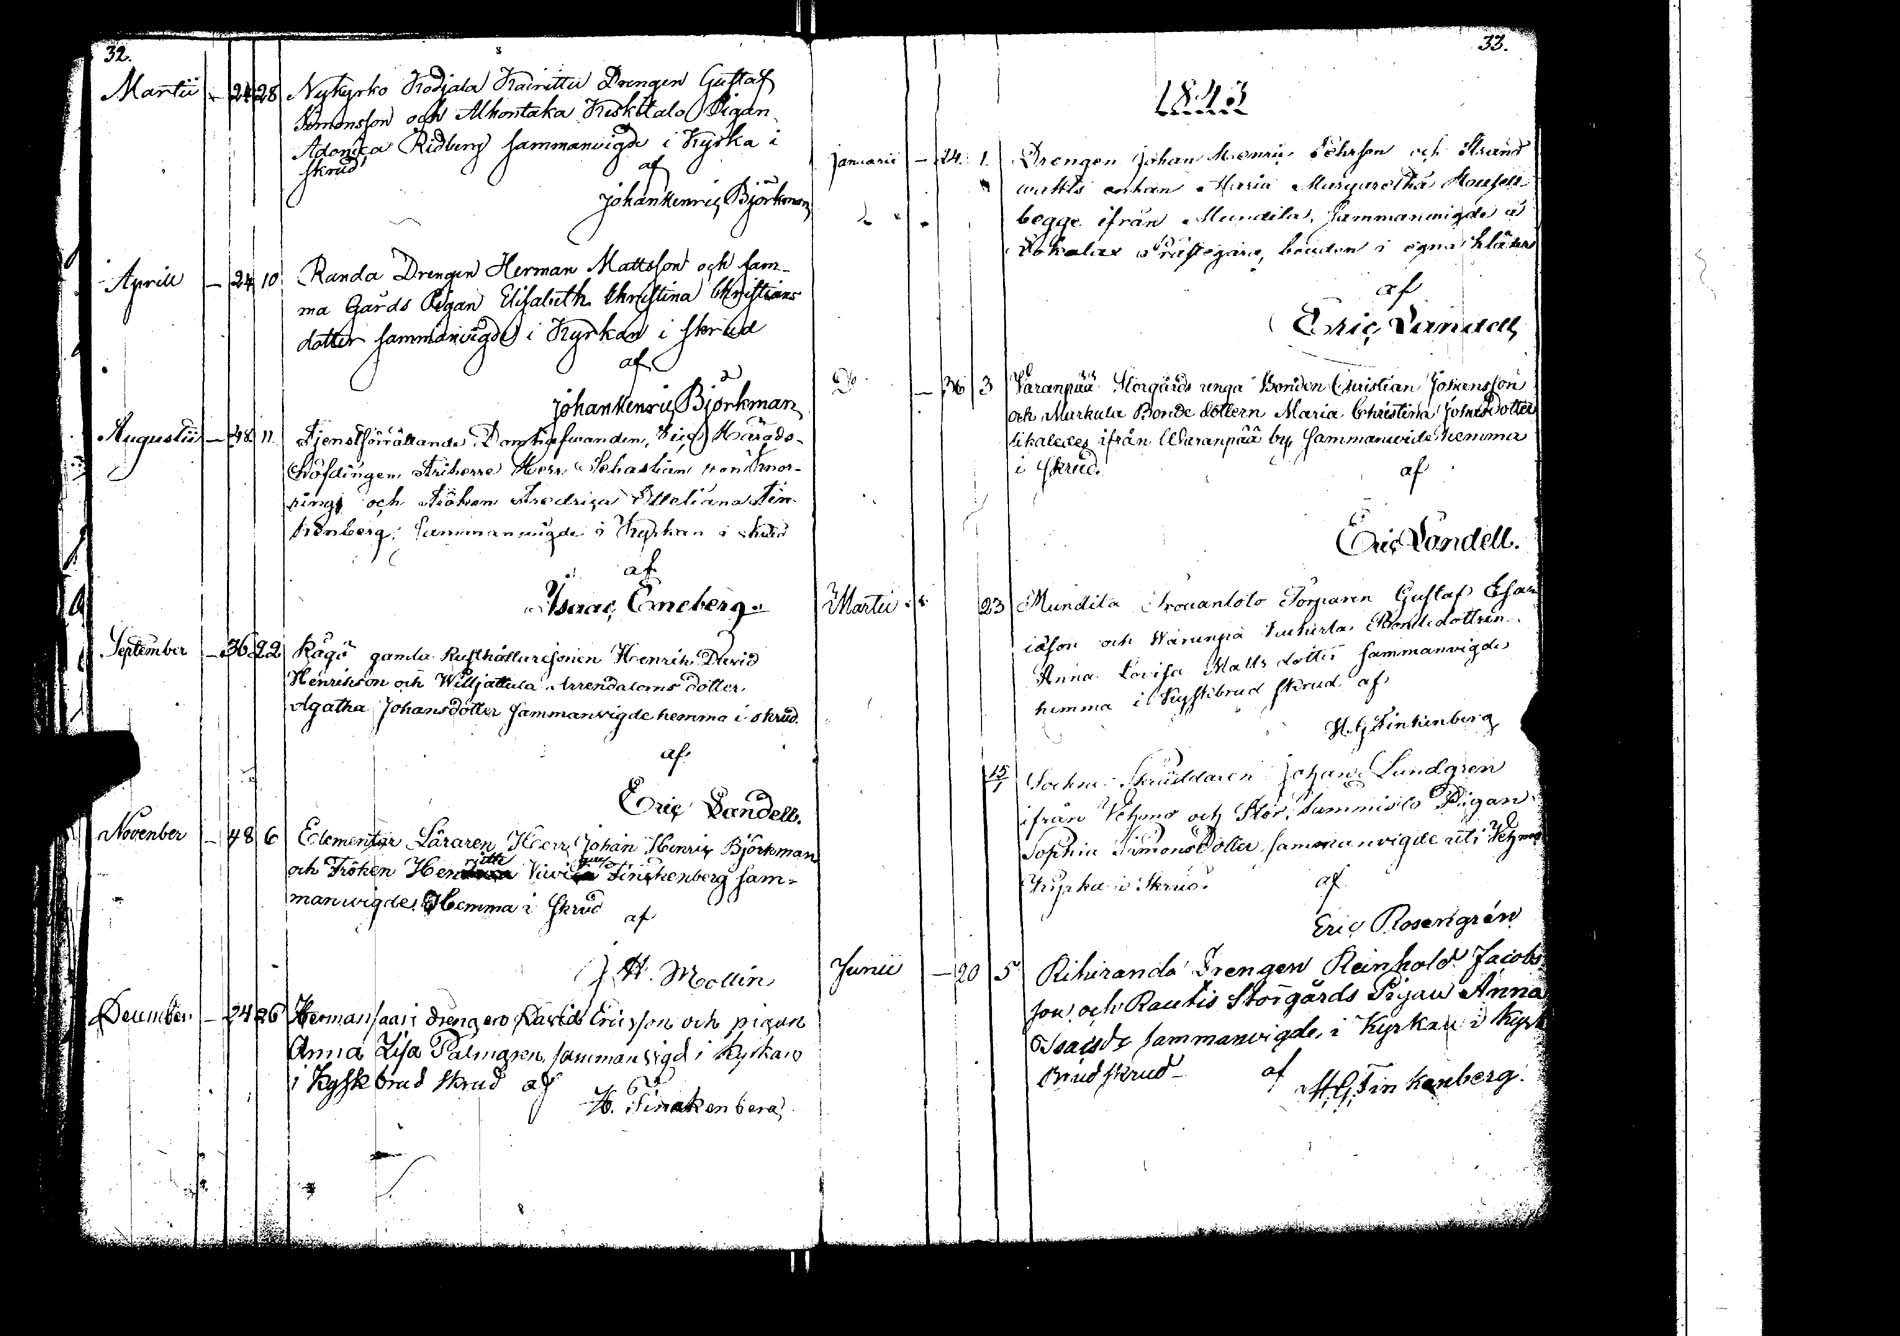 32.
Martii - 24 28 Nykyrko Kodjala Kairittu Drengen Gustaf
Simonsson och Alhontaka Pigan
Ridberg sammanvigde i Kyrka i
skrud af
Johan Henric Björkman
Aprill - 24 10 Randa Drengen Herman Mattsson och sam-
ma Gårds Pigan Elisabeth Christina Christians
dotter sammanvigde i Kyrkan i skrud
af
Johan Henric Björkman
Augustii - 48 11 Tjenstförrättande Domhafwanden, Vice Härads-
höfdingen Friherre Herr Sebastian von Knor-
ring och Fröken Fredrica Tin-
kenberg, sammanvigde i Kyrkan i skrud
af
Isaac Eneberg
September - 36 22 gamla Rusthållaresonen Henrik David
Henrikson och Williattula Arrendatoms dotter
Agatha Johansdotter sammanvigde hemma i skrud.
af
Eric Landell.
November - 48 6 Elementar Läraren Herr Johan Henric Björkman
och Fröken Tinckenberg sam-
manvigde Hemma i skrud af
J. H. Mollin
December - 24 26 Hermansaari drengen David Ericsson och pigan
Anna Lisa Palmgren sammanvigd i kyrkan
i Kyssk brud skrud af
H. G. Tinckenberg
33.
1843
Januarii - 24. 1. Drengen Johan Henric Pehrson och Strand
Enkan Maria Margaretha
begge ifrån Mundila, sammanvigde å
Lokalax Prästegård, bruden i egna kläder
af
Eric Landell
Do - 36 3 Varanpää Storgårds unga Bonden Christian Johansson
och Murkula Bonde dottern Maria Christina Johansdotter
likaledes ifrån Waranpää by sammanvigde hemma
i skrud. af
Eric Landell.
Martii 23 Mundila Torparen Gustaf Esa-
iasson och Waranpä Bondedottren
Anna Lovisa Matts dotter sammanvigde
hemma i Kyskbrud skrud af
H. G. Tinkenberg
15 Sockne Skräddaren Johan Lundgren
ifrån Vehmo och Stor Sammisto Pigan
Sophia Simonsdotter sammanvigde uti Vehmo
Kyrka i Skrud. af
Eric Rosengrén
Junii - 20 5 Rihiranda Drengen Reinhold Jacobs
son och Rautis Storgårds Pigan Anna
Isacsdr sammanvigde i Kyrkan i kysk
Brudskrud - af
H. G. Tinkenberg.